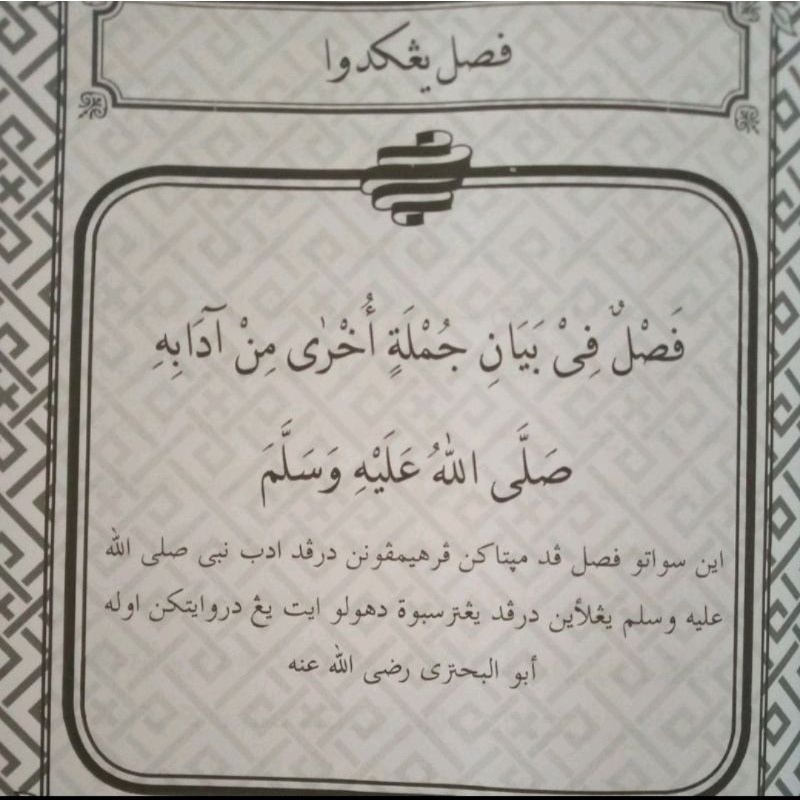 فصل يڠكدوا
فَصْلٌ فِىْ بَيَانِ جُمْلَةٍ أُخْرٰى مِنْ آدَابِهِ
صَلَّى اللهُ عَلَيْهِ وَسَلَّمَ
اين سواتو فصل ڤد مڽتاكن ڤرهيمڤونن درڤد ادب نبى صلى الله
عليه وسلم يڠلأين درڤد يڠترسبوة دهولو ايت يڠ دروايتكن اوله
أبو البحترى رضى الله عنه